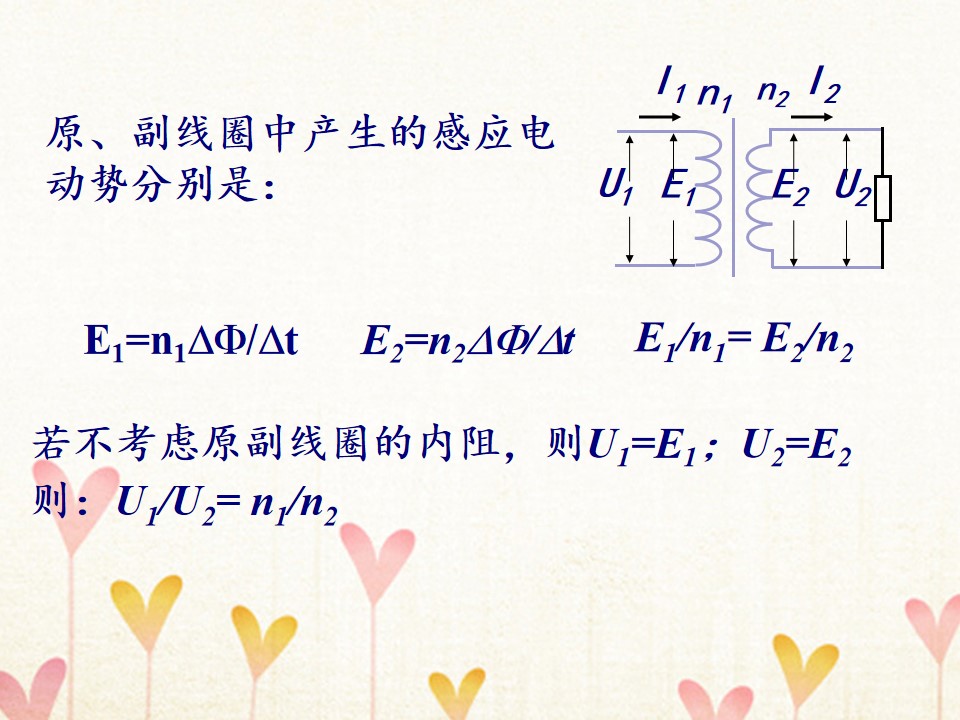 I1 n1 n2 I2
原、副线圈中产生的感应电
动势分别是：
U1 E1 E2 U2
E1=n1ΔΦ/Δt E2=n2ΔΦ/Δt E1/n1= E2/n2
若不考虑原副线圈的内阻，则U1=E1；U2=E2
则：U1/U2= n1/n2